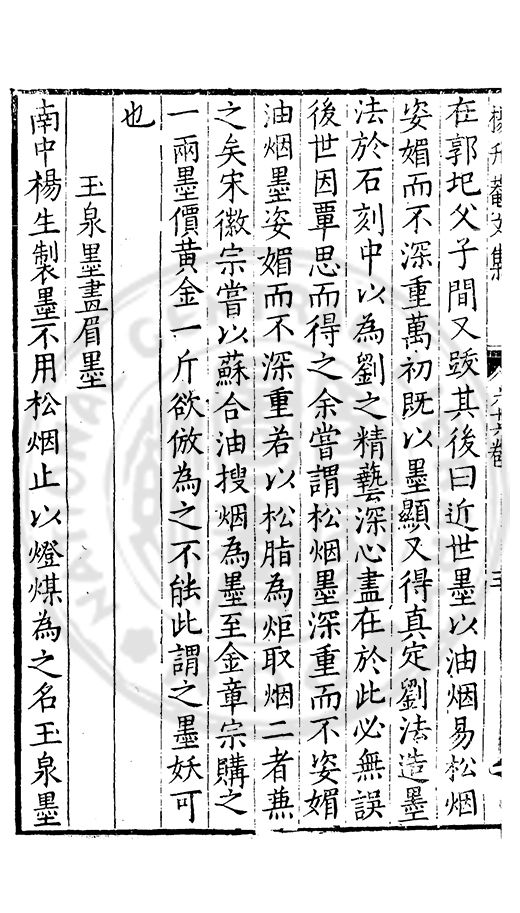 楊升菴文集
在郭圯父子間又跋其後曰近世墨以油烟易松烟
姿媚而不深重萬初既以墨顯又得真定劉法造墨
法於石刻中以為劉之精藝深心盡在於此必無誤
後世因覃思而得之余嘗謂松烟墨深重而不姿媚
油烟墨姿媚而不深重若以松脂為炬取烟二者蕪
之矣宋徽宗嘗以蘇合油搜烟為墨至金章宗購之
一兩墨價黄金一斤欲倣為之不能此謂之墨妖可
也
玉泉墨畫眉墨
南中楊生製墨不用松烟止以燈煤為之名玉泉墨